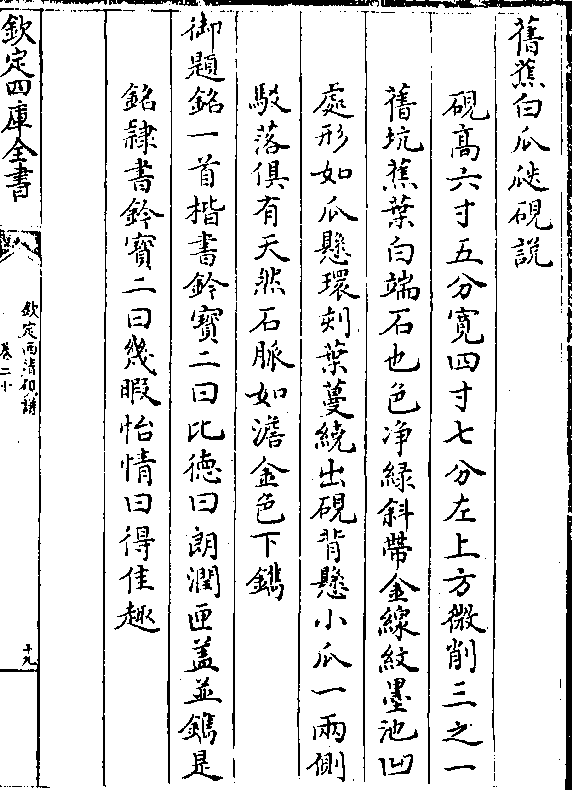 舊蕉白瓜瓞硯說
硯高六寸五分寛四寸七分左上方微削三之一
舊坑蕉葉白端石也色净緑斜帶金線紋墨池凹
處形如瓜懸環刻葉蔓繞出硯背懸小瓜一兩側
駁落俱有天然石脈如澹金色下鐫
御題銘一首楷書鈐寶二曰比德曰朗潤匣蓋並鐫是
銘隷書鈐寶二曰幾暇怡情曰得佳趣
欽定四庫全書
欽定西清硯譜
卷二十
十九